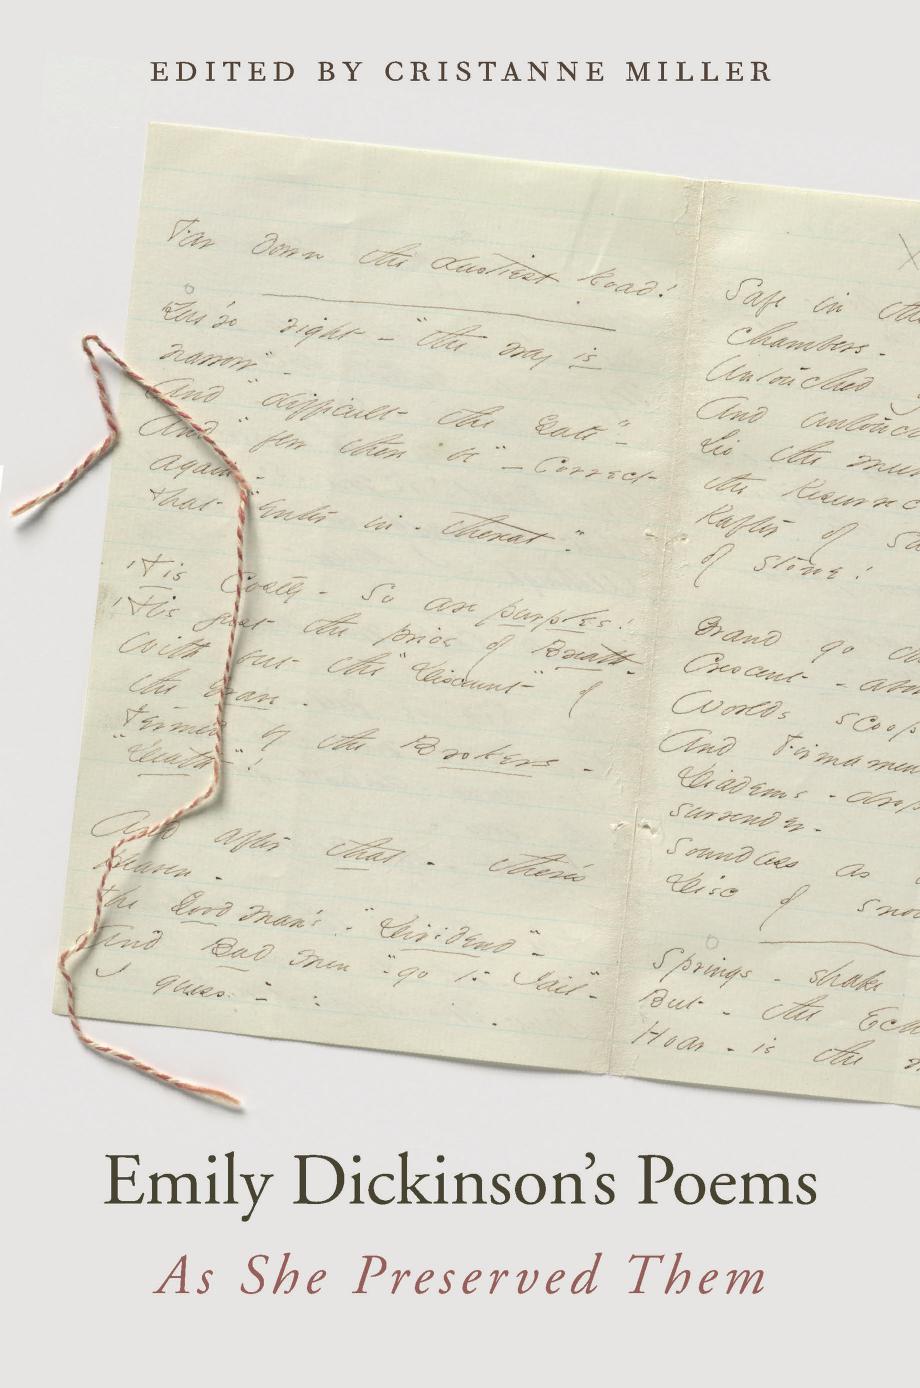 EDITED BY CRISTANNE MILLER
Far down the dustiest Road!
You're right - "the way is
narrow" -
And "difficult the Gate" -
And "few there be" - Correct
again -
that "enter in - thereat."
'Tis Costly - so are purples!
'Tis just the price of Breath -
With but the "Discount" of
the Grave -
Termed by the Brokers -
"Death"!
And after that - there's
Heaven -
the Good man's - "Dividend" -
And Bad men - "go to Jail" -
I guess -
Safe in
Chambers -
Untouched
And
Lie the
the Resurrec
Rafter of
of stone!
Grand go
Crescent - abo
Worlds scoop
And Firmamen
Diadems - drop
surrender -
Soundless as
Disc of snow
Springs - shake
But - the Ech
Hoar - is the
Emily Dickinson's Poems
As She Preserved Them